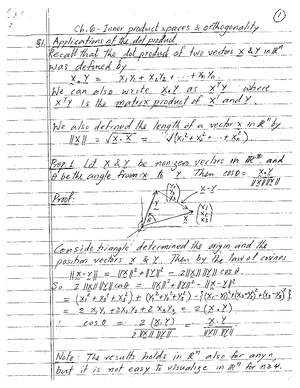 ①
Ch.6 - Inner product spaces & orthogonality
§1. Applications of the dot product
Recall that the dot product of two vectors X & Y in ℝⁿ
was defined by
X • Y = x₁y₁ + x₂y₂ + ... + xₙyₙ.
We can also write X • Y as XᵀY where
XᵀY is the matrix product of Xᵀ and Y.
We also defined the length of a vector X in ℝⁿ by
‖X‖ = √X•X = √(x₁² + x₂² + ... + xₙ²)
Prop. 1 Let X & Y be non-zero vectors in and
θ be the angle from X to Y. Then cosθ = X•Y / ‖X‖‖Y‖
Proof:
X-Y
Y
X
θ
Consider triangle determined the origin and the
position vectors X & Y. Then by the law of cosines
‖X-Y‖² = ‖X‖² + ‖Y‖² - 2‖X‖‖Y‖ cosθ.
So 2‖X‖‖Y‖cosθ = ‖X‖² + ‖Y‖² - ‖X-Y‖²
= (x₁²+x₂²+x₃²) + (y₁²+y₂²+y₃²) - {(x₁-y₁)²+(x₂-y₂)²+(x₃-y₃)²}
= 2x₁y₁ + 2x₂y₂ + 2x₃y₃ = 2(X•Y)
cosθ = 2(X•Y) / 2‖X‖‖Y‖ = X•Y / ‖X‖‖Y‖
Note: The results holds in ℝⁿ also for any n,
but it is not easy to visualize in ℝⁿ for n≥4.